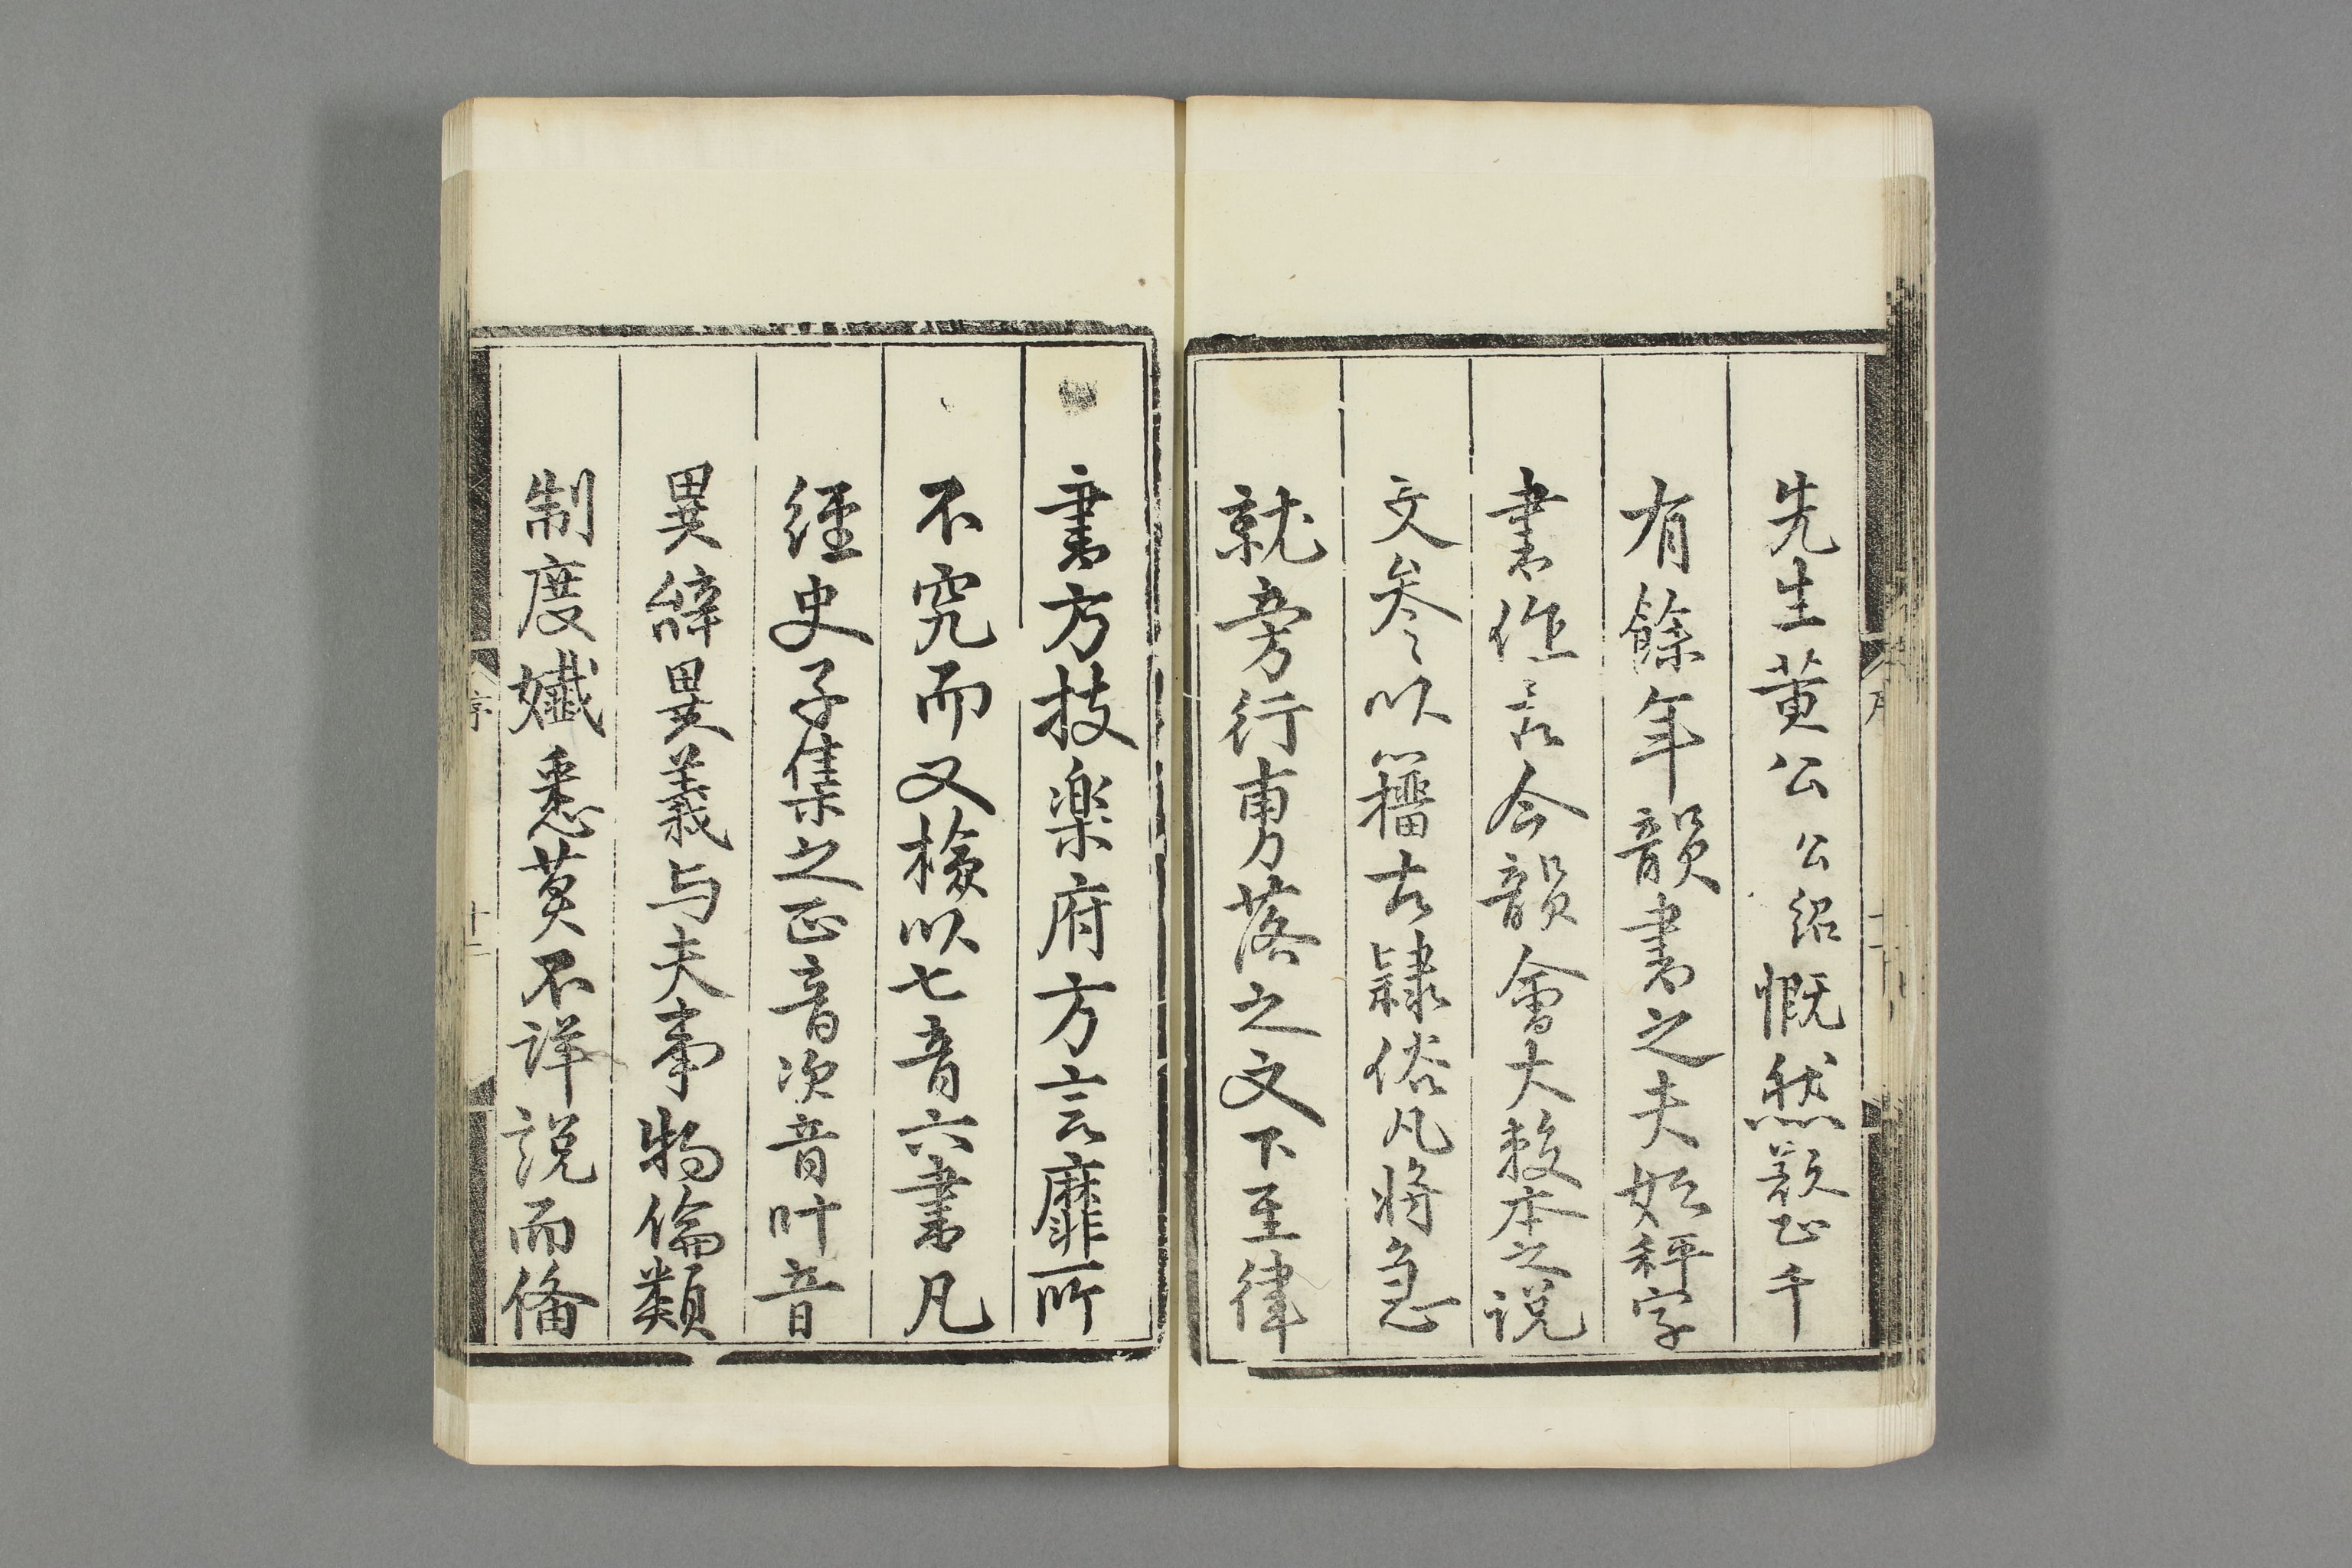 先生黄公公紹慨然欲正千
有餘年韻書之失始秤字
書作古今韻會大較本之說
文参以籀古隸俗凡將急
就旁行旉落之文下至律
書方技楽府方言靡所
不究而又檢以七音六書凡
經史子集之正音次音叶音
異辭異義与夫事物倫類
制度孅悉莫不詳說而俻
序
十二